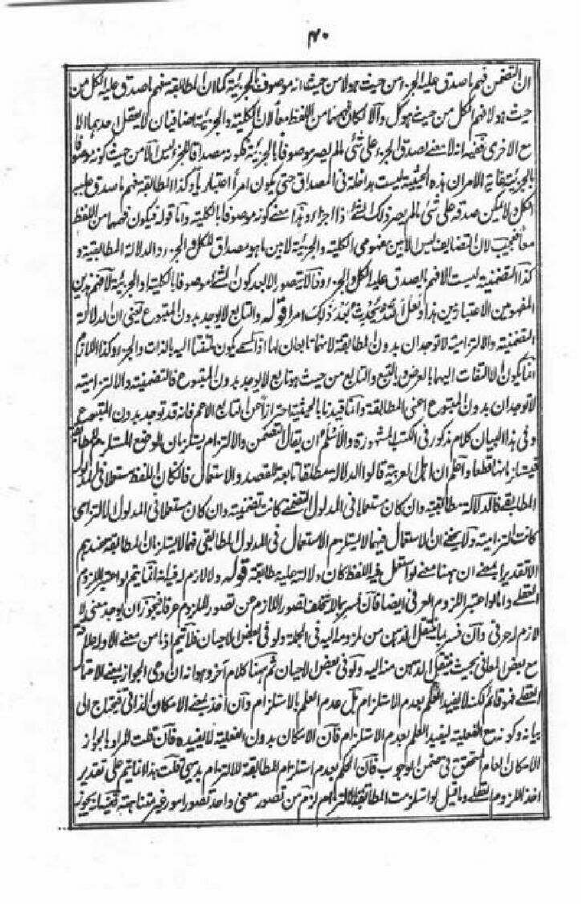 ۴۰
ان التضمن فهم ما صدق عليه الجزء من حيث هو لا من حيث انه موصوف بالجزئية كما ان المطابقة فهم ما صدق عليه الكل من
حيث هو لا فهم الكل من حيث هو كل والا لكان فهمهما من اللفظ معا لان الكلية والجزئية اضافيان لا يعقل احدهما الا
مع الاخرى ففيه انه لا معنى لصدق الجزء على شئ لم يصر موصوفا بالجزئية فكونه مصداقا للجزء ليس الا من حيث كونه موصوفا
بالجزئية غاية الامر ان هذه الحيثية ليست بداخلة في المصداق حتى يكون امرا اعتباريا وكذا المطابقة فهم ما صدق عليه
الكل لا يمكن صدقه على شئ لم يصر ذلك الشئ ذا اجزاء وهذا معنى كونه موصوفا بالكلية واما قوله فيكون فهمهما من اللفظ
معا فعجيب لان التضايف ليس الا بين مفهومي الكلية والجزئية لا بين ما هو مصداق للكل والجزء والدلالة المطابقية و
كذا التضمنية ليست الا فهم ما يصدق عليه الكل والجزء
المفهومين الاعتباريين هذا ولعل الله يحدث بعد ذلك امرا قوله والتابع لا يوجد بدون المتبوع يعنى ان الدلالة
التضمنية والالتزامية لا توجدان بدون المطابقة لانهما تابعان لها اذ الجزء يكون ملتفتا اليه بالذات والجزء وكذا اللازم
انما يكون الالتفات اليهما بالعرض والتبع والتابع من حيث هو تابع لا يوجد بدون المتبوع فالتضمنية والالتزامية
لا توجدان بدون المتبوع اعنى المطابقة وانما قيدنا بالحيثية احترازا عن التابع الاعم فانه قد توجد بدون المتبوع
وفى هذا البيان كلام مذكور في الكتب المشهورة والاسلم ان يقال التضمن والالتزام يستلزمان الوضع المستلزم للمطابقة
قطعا واعلم ان اهل العربية قالوا الدلالة مطلقا تابعة للقصد والاستعمال فان كان اللفظ مستعملا في المدلول
المطابقي فالدلالة مطابقية وان كان مستعملا في المدلول التضمني كانت تضمنية وان كان مستعملا في المدلول الالتزامي
كانت التزامية ولا يخفى ان الاستعمال فيهما لا يستلزم الاستعمال في المدلول المطابقي فهما لا يستلزمان المطابقة عندهم
الا تقديرا بمعنى ان ههنا معنى لو استعمل فيه اللفظ كان دلالته عليه مطابقة قوله ولا لازم له فيه انه انما يتم لو اعتبر اللزوم
العقلي واما لو اعتبر اللزوم العرفي ايضا فان فسر بما لا يتخلف تصور اللازم عن تصور الملزوم عرفا فيجوز ان يوجد معنى لا
لازم له عرفي وان فسر بما ينتقل الذهن من ملزومه اليه في الجملة ولو في بعض الاحيان فلا يتم اذ ما من معنى الا وله علاقة
مع بعض المعاني بحيث ينتقل الذهن منه اليه ولو في بعض الاحيان ثم ههنا كلام آخر وهو انه ان ادعى الجواز بمعنى الاحتمال
العقلي فهو قائم لكنه لا يفيد العلم بعدم الاستلزام بل عدم العلم بالاستلزام وان اخذ بمعنى الامكان الذاتي فيحتاج الى
بيانه وكونه مع الفعلية ليفيد العلم بعدم الاستلزام فان الامكان بدون الفعلية لا يفيده فان قلت المراد بالجواز
الامكان العام المتحقق في ضمن الوجوب فان الحكم بعدم استلزام المطابقة للالتزام بديهي قلت هذا انما يتم على تقدير
اخذ اللزوم العقلي وما قيل لو استلزمت المطابقة للالتزام لزم من تصور معنى واحد تصور امور غير متناهية ففيه انه يجوز